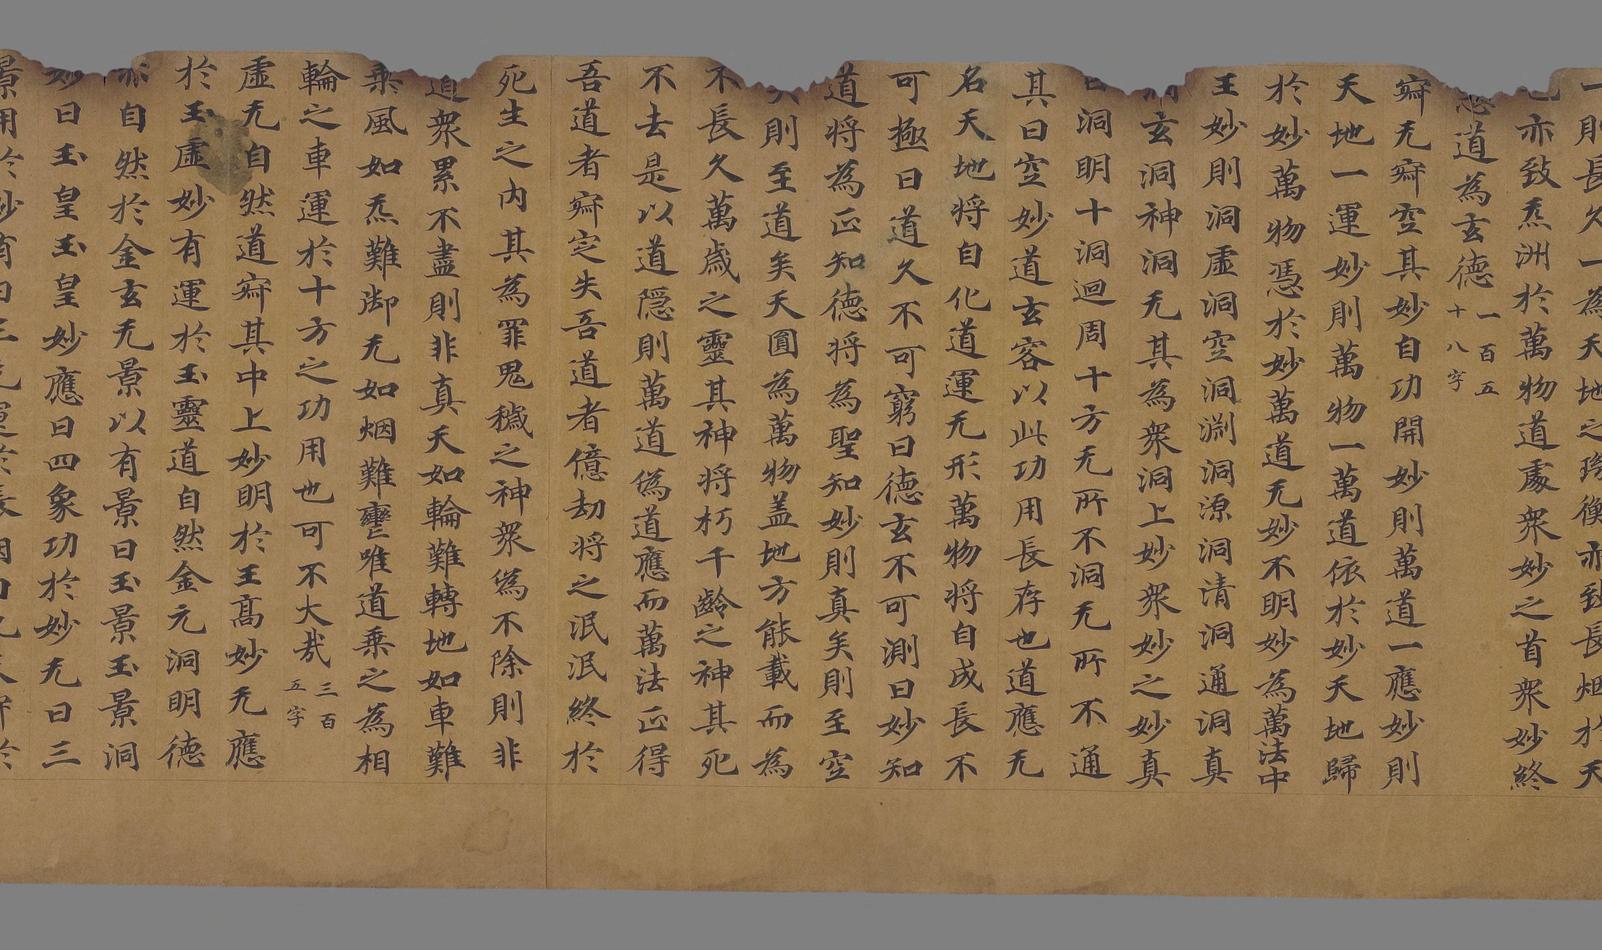 一則長久一為天地之 衡亦致長烟於天
亦致炁洲於萬物道處衆妙之首衆妙終
道為玄德一百五十八字
寂无寂空其妙自功開妙則萬道一應妙則
天地一運妙則萬物一萬道依於妙天地歸
於妙萬物憑於妙萬道无妙不明妙為萬法中
王妙則洞虛洞空洞淵洞源洞清洞通洞真
玄洞神洞无其為衆洞上妙衆妙之妙真
洞明十洞迴周十方无所不洞无所不通
其曰空妙道玄容以此功用長存也道應无
名天地將自化道運无形萬物將自成長不
可極曰道久不可窮曰德玄不可測曰妙知
道將為正知德將為聖知妙則真矣則至空
矣則至道矣天圓為萬物盖地方能載而為
不長久萬歲之靈其神將朽千齡之神其死
不去是以道隱則萬道偽道應而萬法正得
吾道者寂定失吾道者億劫將之泯泯終於
死生之内其為罪鬼穢之神衆偽不除則非
迫衆累不盡則非真天如輪難轉地如車難
乘風如炁難御无如烟難 唯道乘之為相
輪之車運於十方之功用也可不大哉三百五字
虛无自然道寂其中上妙明於王高妙无應
於玉虛妙有運於玉靈道自然金元洞明德
亦自然於金玄无景以有景曰玉景玉景洞
妙曰玉皇玉皇妙應曰四象功於妙无曰三
景用於妙有曰三